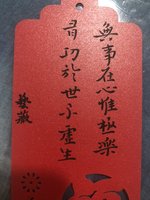 無事在心惟極樂
有功於世永虛生
藝薇